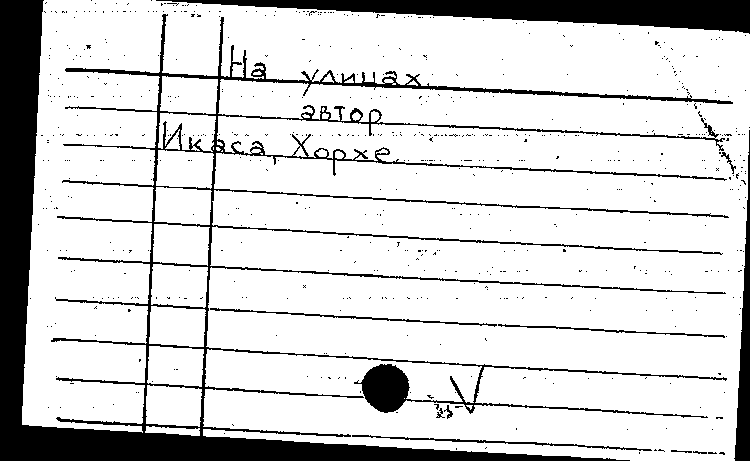 На улицах
автор
Икаса, Хорхе